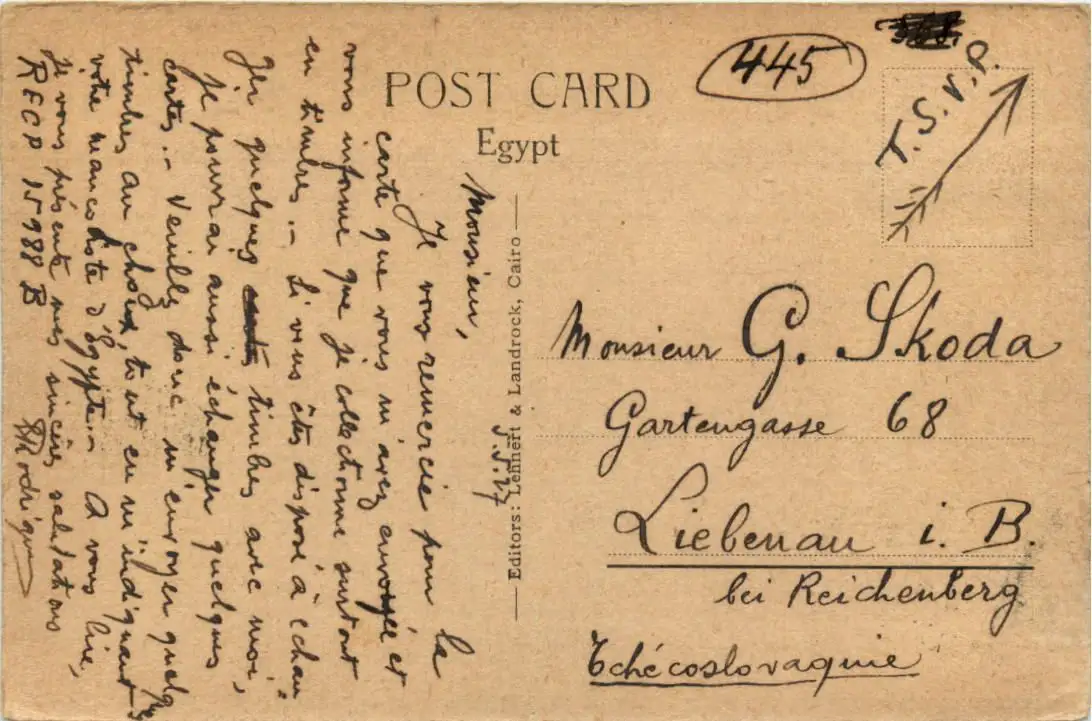 445
T.S.V.P.
POST CARD
Egypt
Editors: Lehnert & Landrock, Cairo
5.5.27
Monsieur,
Je vous remercie pour la
carte que vous m'avez envoyée et
vous informe que je collectionne surtout
en timbres. - Si vous êtes disposé à échan-
ger quelques timbres avec moi,
je pourrai aussi échanger quelques
cartes. - Veuillez donc m'envoyer quelques
timbres au choix, tout en m'indiquant
votre mancoliste d'Egypte. - A vous lire,
je vous présente mes sincères salutations
RECP 15988 B
Monsieur G. Skoda
Gartengasse 68
Liebenau i. B.
bei Reichenberg
Tchécoslovaquie